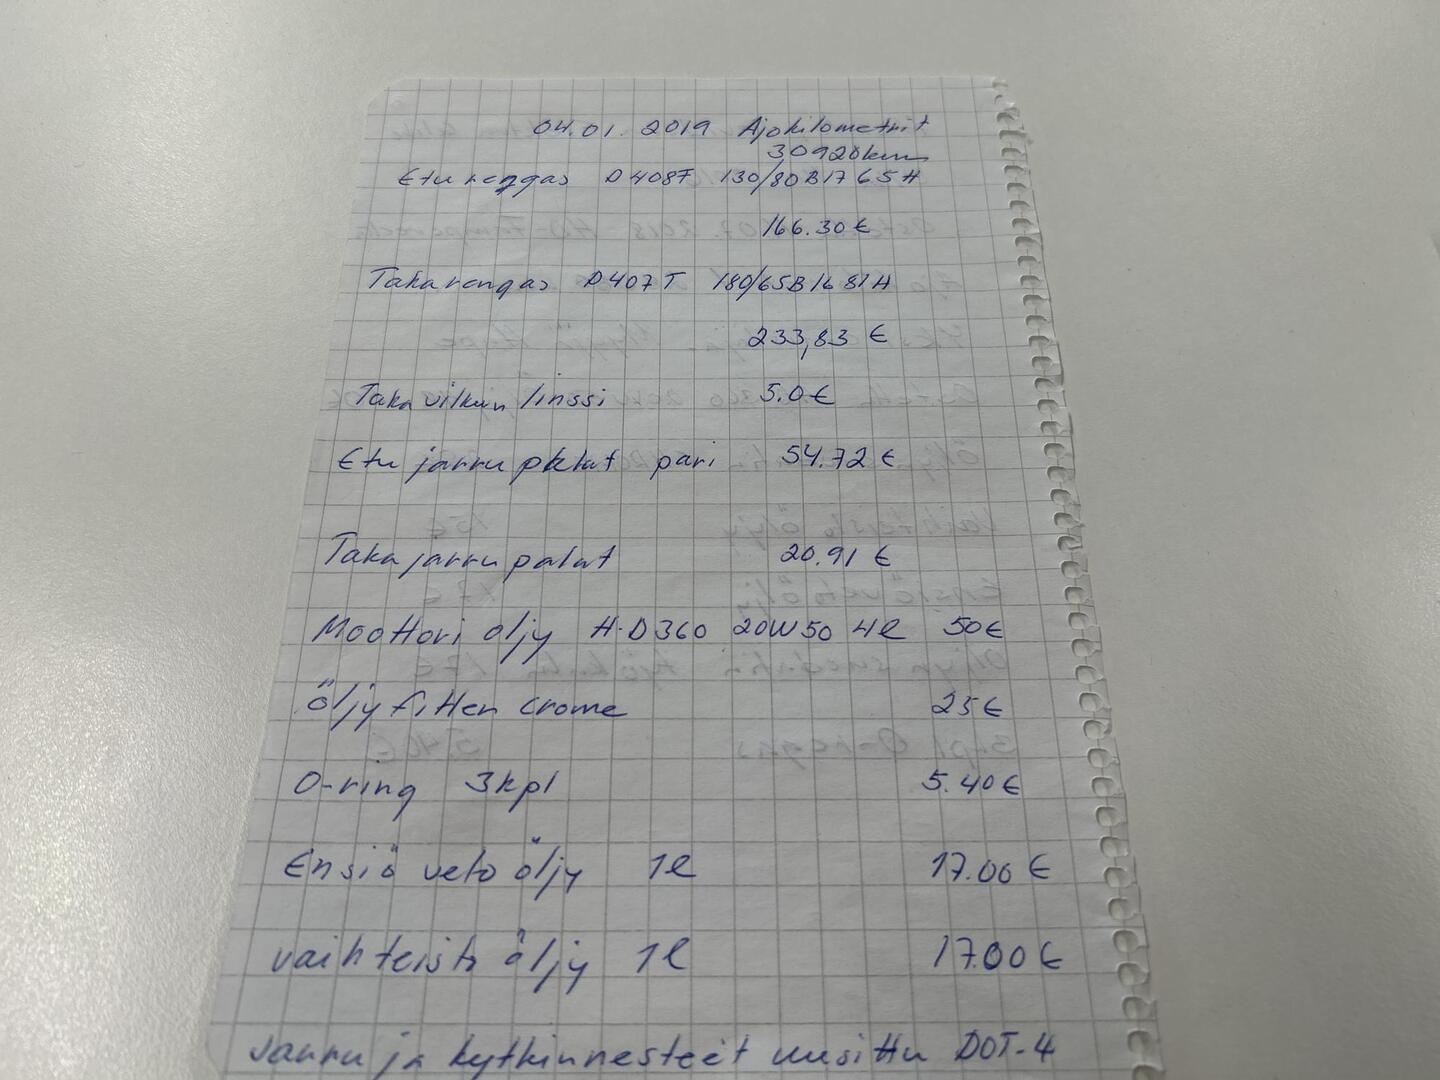 04.01. 2019 Ajokilometrit
30920km
Etu renggas D408F 130/80B17 65H
166.30 €
Takarengas D407T 180/65B16 81H
233,83 €
Taka vilkun linssi 5.0 €
Etu jarru palat pari 54.72 €
Taka jarru palat 20.91 €
Moottori öljy H-D 360 20W50 4l 50€
Öljy filtteri crome 25€
O-ring 3kpl 5.40€
Ensiö veto öljy 1l 17.00 €
vaihteisto öljy 1l 17.00 €
Jarru ja kytkinnesteet uusittu DOT-4